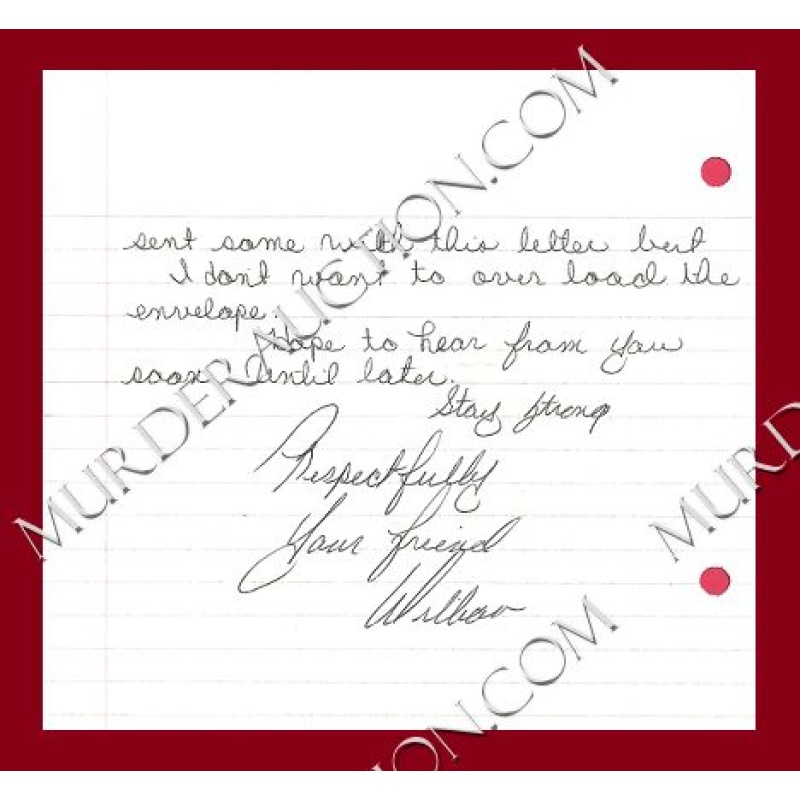 sent some with this letter but
I dont want to over load the
envelope.
Hope to hear from you
soon! Until later.
Stay Strong
Respectfully
Your friend
MURDERAUCTION.COM
MURD
ON.COM